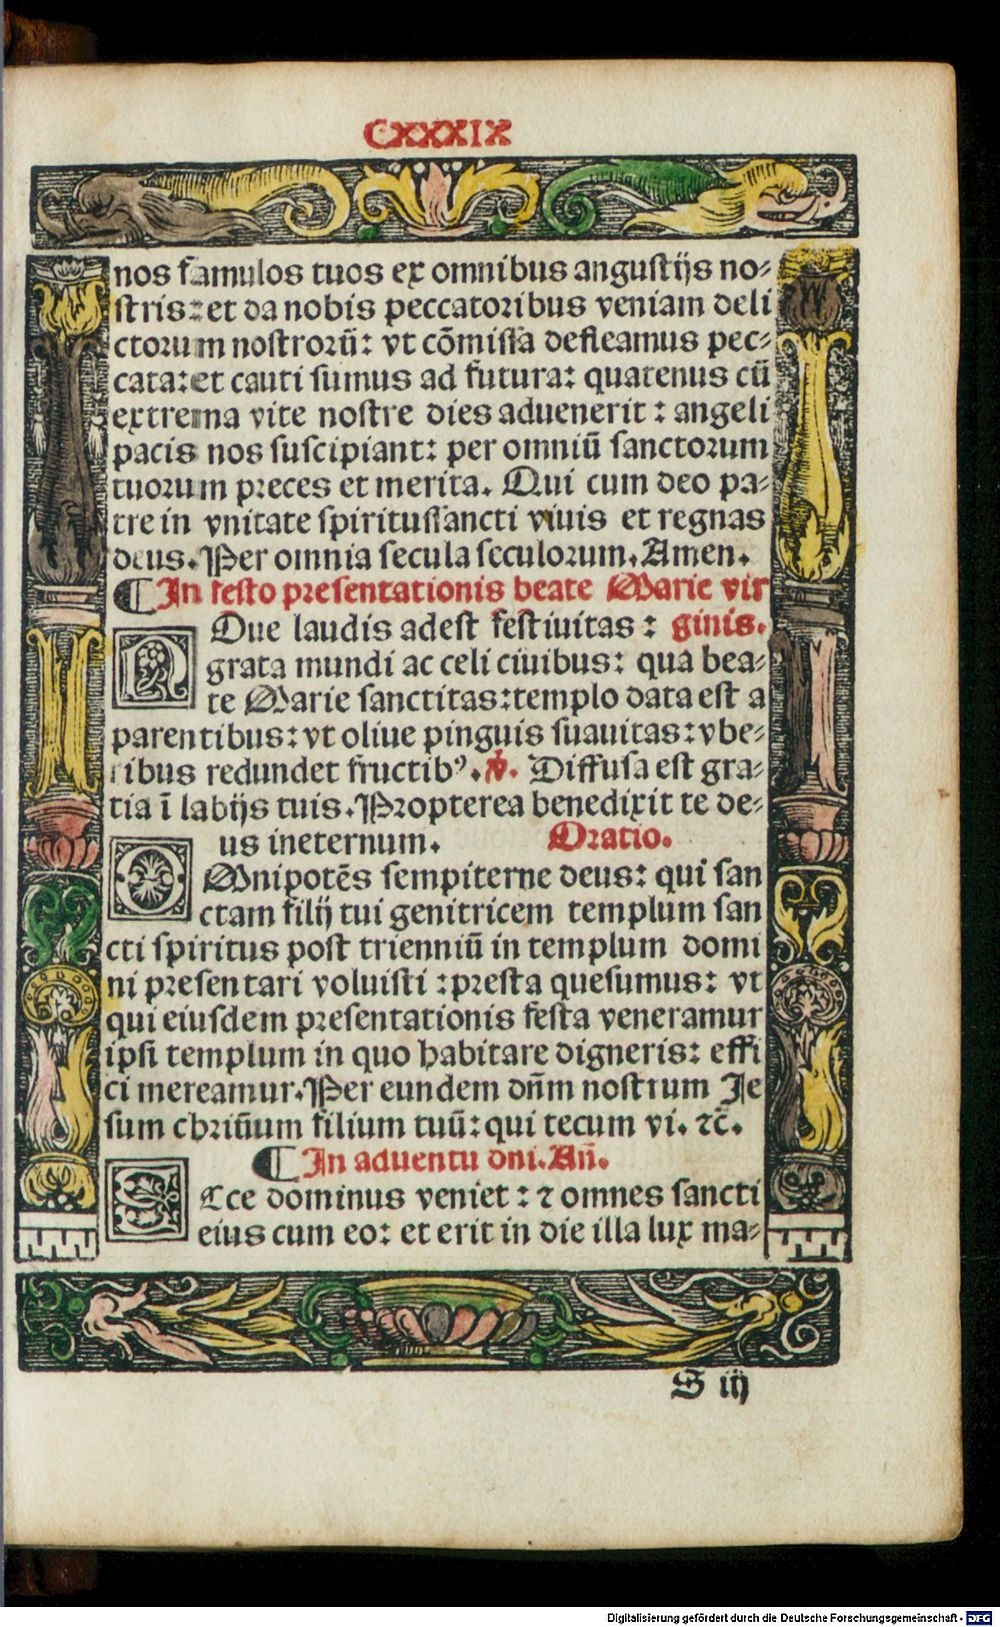 CXXXIX
nos famulos tuos ex omnibus angustijs no⸗
stris: et da nobis peccatoribus veniam deli
ctorum nostrorū: vt cōmissa defleamus pec⸗
cata: et cauti simus ad futura: quatenus cū
extrema vite nostre dies aduenerit: angeli
pacis nos suscipiant: per omniū sanctorum
tuorum preces et merita. Qui cum deo pa⸗
tre in vnitate spiritussancti viuis et regnas
deus. Per omnia secula seculorum. Amen.
¶ In festo presentationis beate Marie vir
NOue laudis adest festiuitas: ginis.
grata mundi ac celi ciuibus: qua bea⸗
te Marie sanctitas: templo data est a
parentibus: vt oliue pinguis suauitas: vbe⸗
ribus redundet fructibꝰ. ℣. Diffusa est gra⸗
tia ī labijs tuis. Propterea benedixit te de⸗
us ineternum. Oratio.
OMnipotēs sempiterne deus: qui san
ctam filij tui genitricem templum san
cti spiritus post trienniū in templum domi
ni presentari voluisti: presta quesumus: vt
qui eiusdem presentationis festa veneramur
ipsi templum in quo habitare digneris: effi
ci mereamur. Per eundem dn̄m nostrum Je
sum chriūum filium tuū: qui tecum vi. ⁊c̄.
¶ In aduentu dni. An̄.
ECce dominus veniet: ⁊ omnes sancti
eius cum eo: et erit in die illa lux ma⸗
S iij
Digitalisierung gefördert durch die Deutsche Forschungsgemeinschaft - DFG